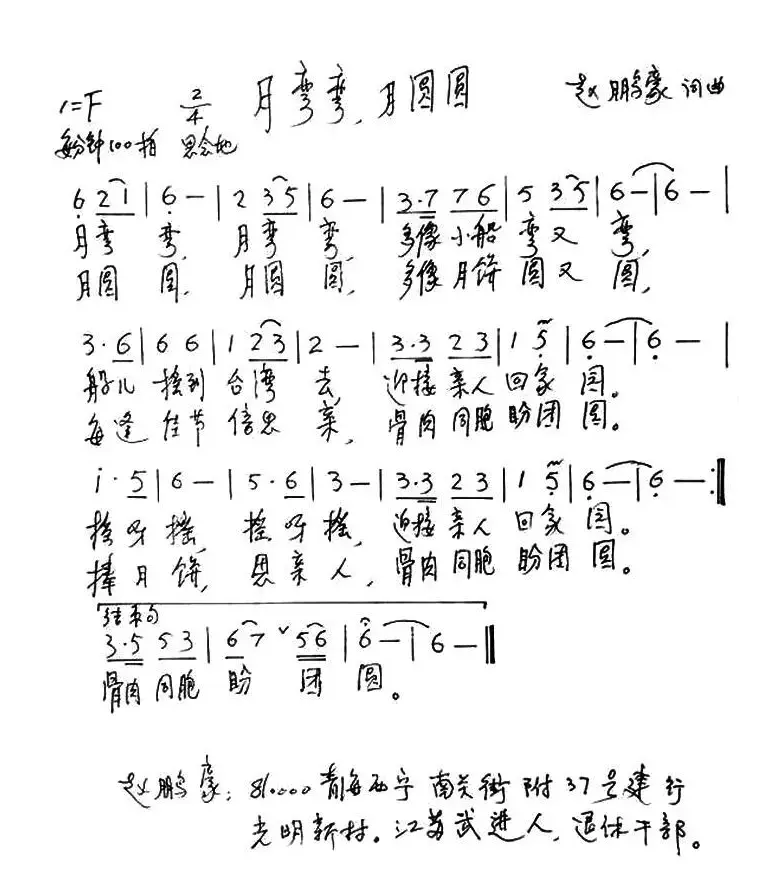 1=F 2/4 月弯弯，月圆圆 赵鹏豪 词曲
每分钟100拍 思念地
6 2 1 | 6 — | 2 3 5 | 6 — | 3·7 7 6 | 5 3 5 | 6 — | 6 — |
月弯 弯， 月弯 弯， 多像 小船 弯又 弯，
月圆 圆， 月圆 圆， 多像 月饼 圆又 圆，
3·6 | 6 6 | 1 2 3 | 2 — | 3·3 2 3 | 1 5 | 6 — | 6 — |
船儿 摇到 台湾 去， 迎接 亲人 回家 园。
每逢 佳节 倍思 亲， 骨肉 同胞 盼团 圆。
i·5 | 6 — | 5·6 | 3 — | 3·3 2 3 | 1 5 | 6 — | 6 — :|
摇呀 摇， 摇呀 摇， 迎接 亲人 回家 园。
捧月 饼， 思亲 人， 骨肉 同胞 盼团 圆。
结束句
3·5 5 3 | 6 7 ˇ 5 6 | 6 — | 6 — ‖
骨肉 同胞 盼 团 圆。
赵鹏豪：810000 青海西宁 南关街 附37号建行
光明新村。江苏武进人，退休干部。